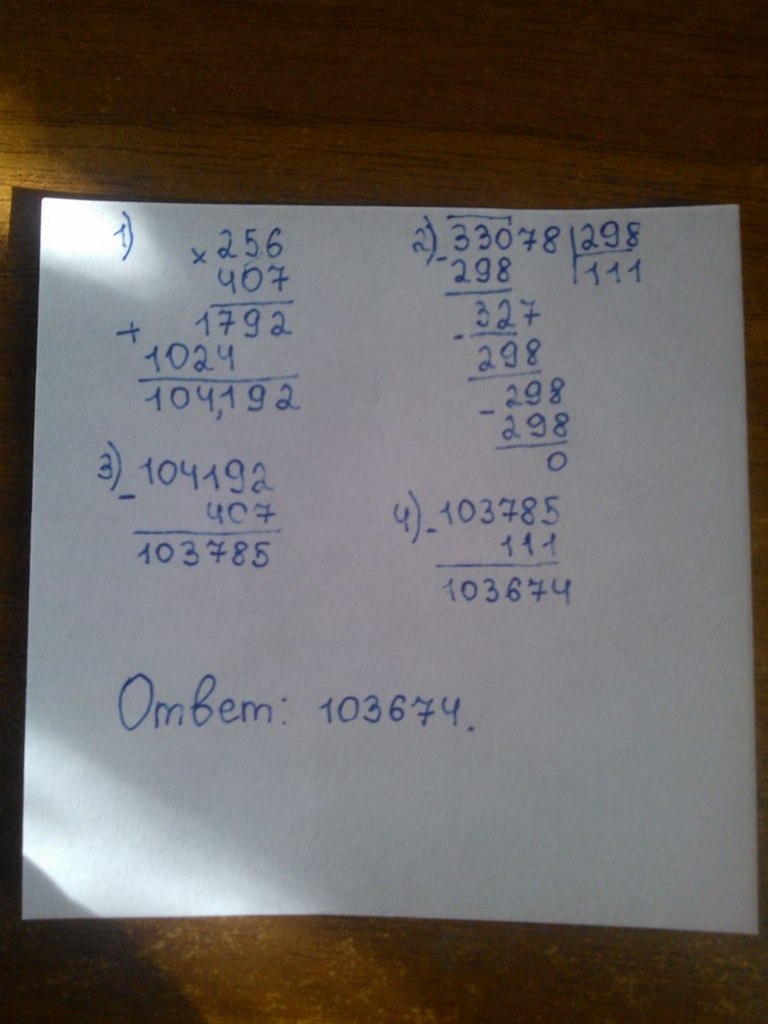 1) × 256
407
+ 1792
1024
104,192
2) - 33078 | 298
298 | 111
- 327
298
- 298
298
0
3) - 104192
407
103785
4) - 103785
111
103674
Ответ: 103674.